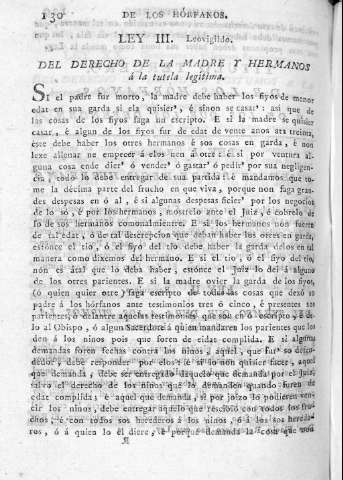 130
DE LOS HÓRFANOS.
LEY III. Leovigildo.
DEL DERECHO DE LA MADRE Y HERMANOS
á la tutela legítima.
SI el padre fur morto, la madre debe haber los fiyos de menor
edat en sua garda si ela quisier', é sinon se casar': asi que de
las cosas de los fiyos faga un escripto. E si la madre se quisier
casar, é algun de los fiyos fur de edat de vente anos ata treinta,
este debe haber los otres hermanos é sos cosas en garda, é non
lexe allenar ne empecer á elos nen á otre: é si por ventura al-
guna cosa ende dier' ó vender' ó gastar' ó pedir' por sua negligen-
cia, todo lo debe entregar de sua partida: é mandamos que to-
me la décima parte del frucho en que viva, porque non faga gran-
des despesas en ó al, é si algunas despesas ficier' por los negocios
de lo só, é por los hermanos, mostrelo ante el Juiz, é cobrelo de
lo de sos hermanos comunalmientre. E si los hermanos non fueren
de tal edat, ó de tal descripcion que debar haber los otres en garda,
estónce el tio, ó el fiyo del tio debe haber la garda delos en tal
manera como dixemos del hermano. E si el tio, ó el fiyo del tio,
non es átal que lo deba haber, estónce el Juiz lo dei á alguno
de los otres parientes. E si la madre ovier la garda de los fiyos,
(ó quien quier otre) faga escripto de todas las cosas que dexó so
padre á los hórfanos ante testimonios tres ó cinco, é presentes sos
parientes, é delantre aquelas testimonios que son en o escripto, é de-
lo al Obispo, ó algun Sacerdote á quien mandaren los parientes que los
den á los ninos pois que foren de eidat complida. E si algunas
demandas foren fechas contra los ninos, aquel, que fur' so defen-
dedor, debe responder por elos: é si lo non quisier facer, aquel
que demanda, debe ser entregado daquelo que demanda por el Juiz,
salvo el derecho de los ninos que lo demanden quando foren de
edat complida: é aquel que demanda, si por joizo lo podieren ven-
cir los ninos, debe entregar aquelo que rescibió con todos los fru-
chos, é con todos sos herederos á los ninos, ó á los sos hereda-
ros, ó á quien lo él diere, é porque demanda la cosa que non